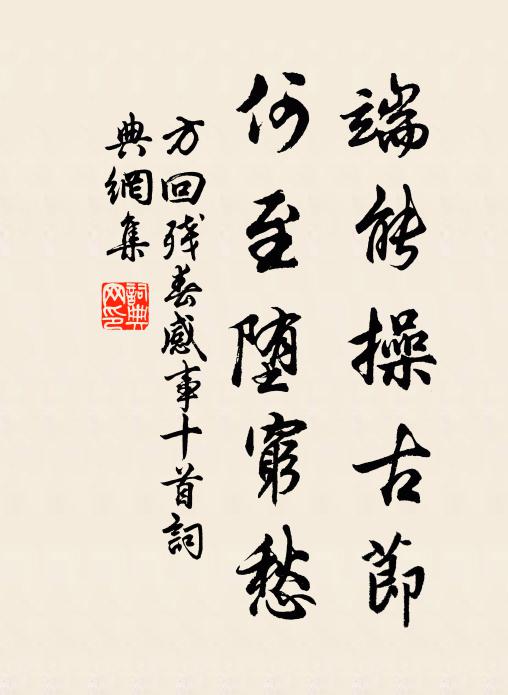 端能操古節
何至墮窮愁
方回殘春感事十首詞
典網集
詞典
网印